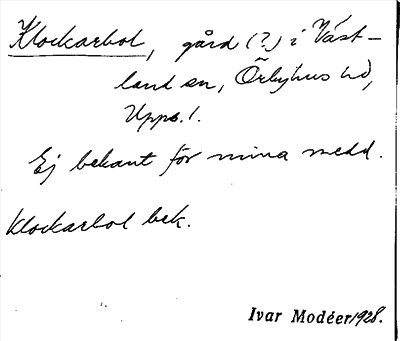 Klockarbol, gård (?) i Väst-
land sn, Örbyhus hd,
Upps. l.
Ej bekant för mina medd.
Klockarbol bek.
Ivar Modéer 1928.